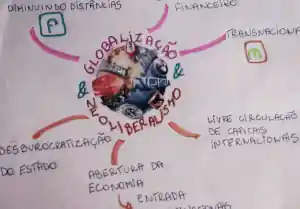 DIMINUINDO DISTÂNCIAS
FINANCEIRO
TRANSNACIONA
GLOBALIZAÇÃO
&
&
NEOLIBERALISMO
DESBUROCRATIZAÇÃO
DO ESTADO
ABERTURA DA
ECONOMIA
ENTRADA
LIVRE CIRCULAÇÃO
DE CAPITAIS
INTERNACIONAIS